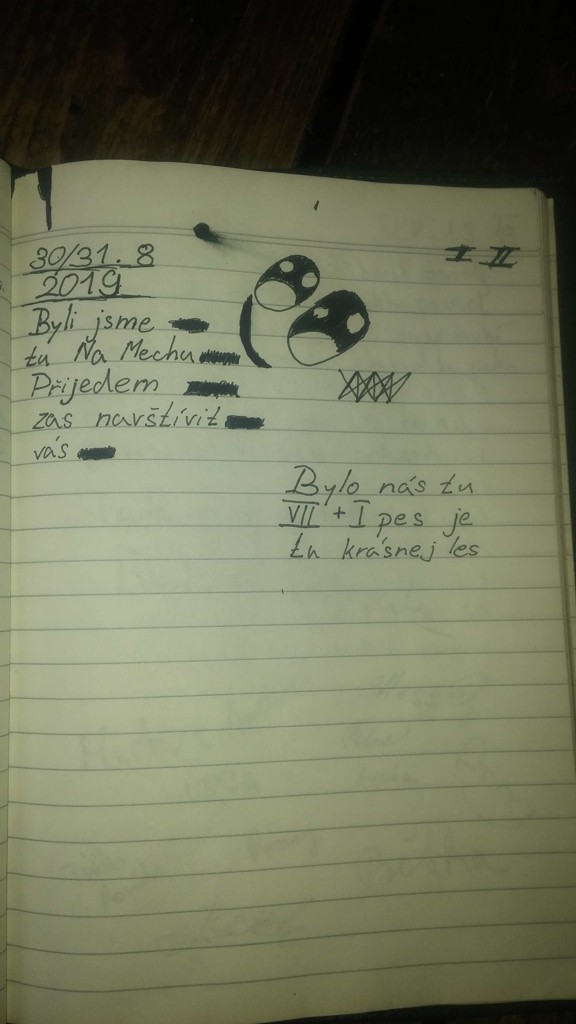 I II
30/31. 8
2019
Byli jsme
tu Na Mechu
Přijedem
zas navštívit
vás
Bylo nás tu
VII + I pes je
tu krásnej les